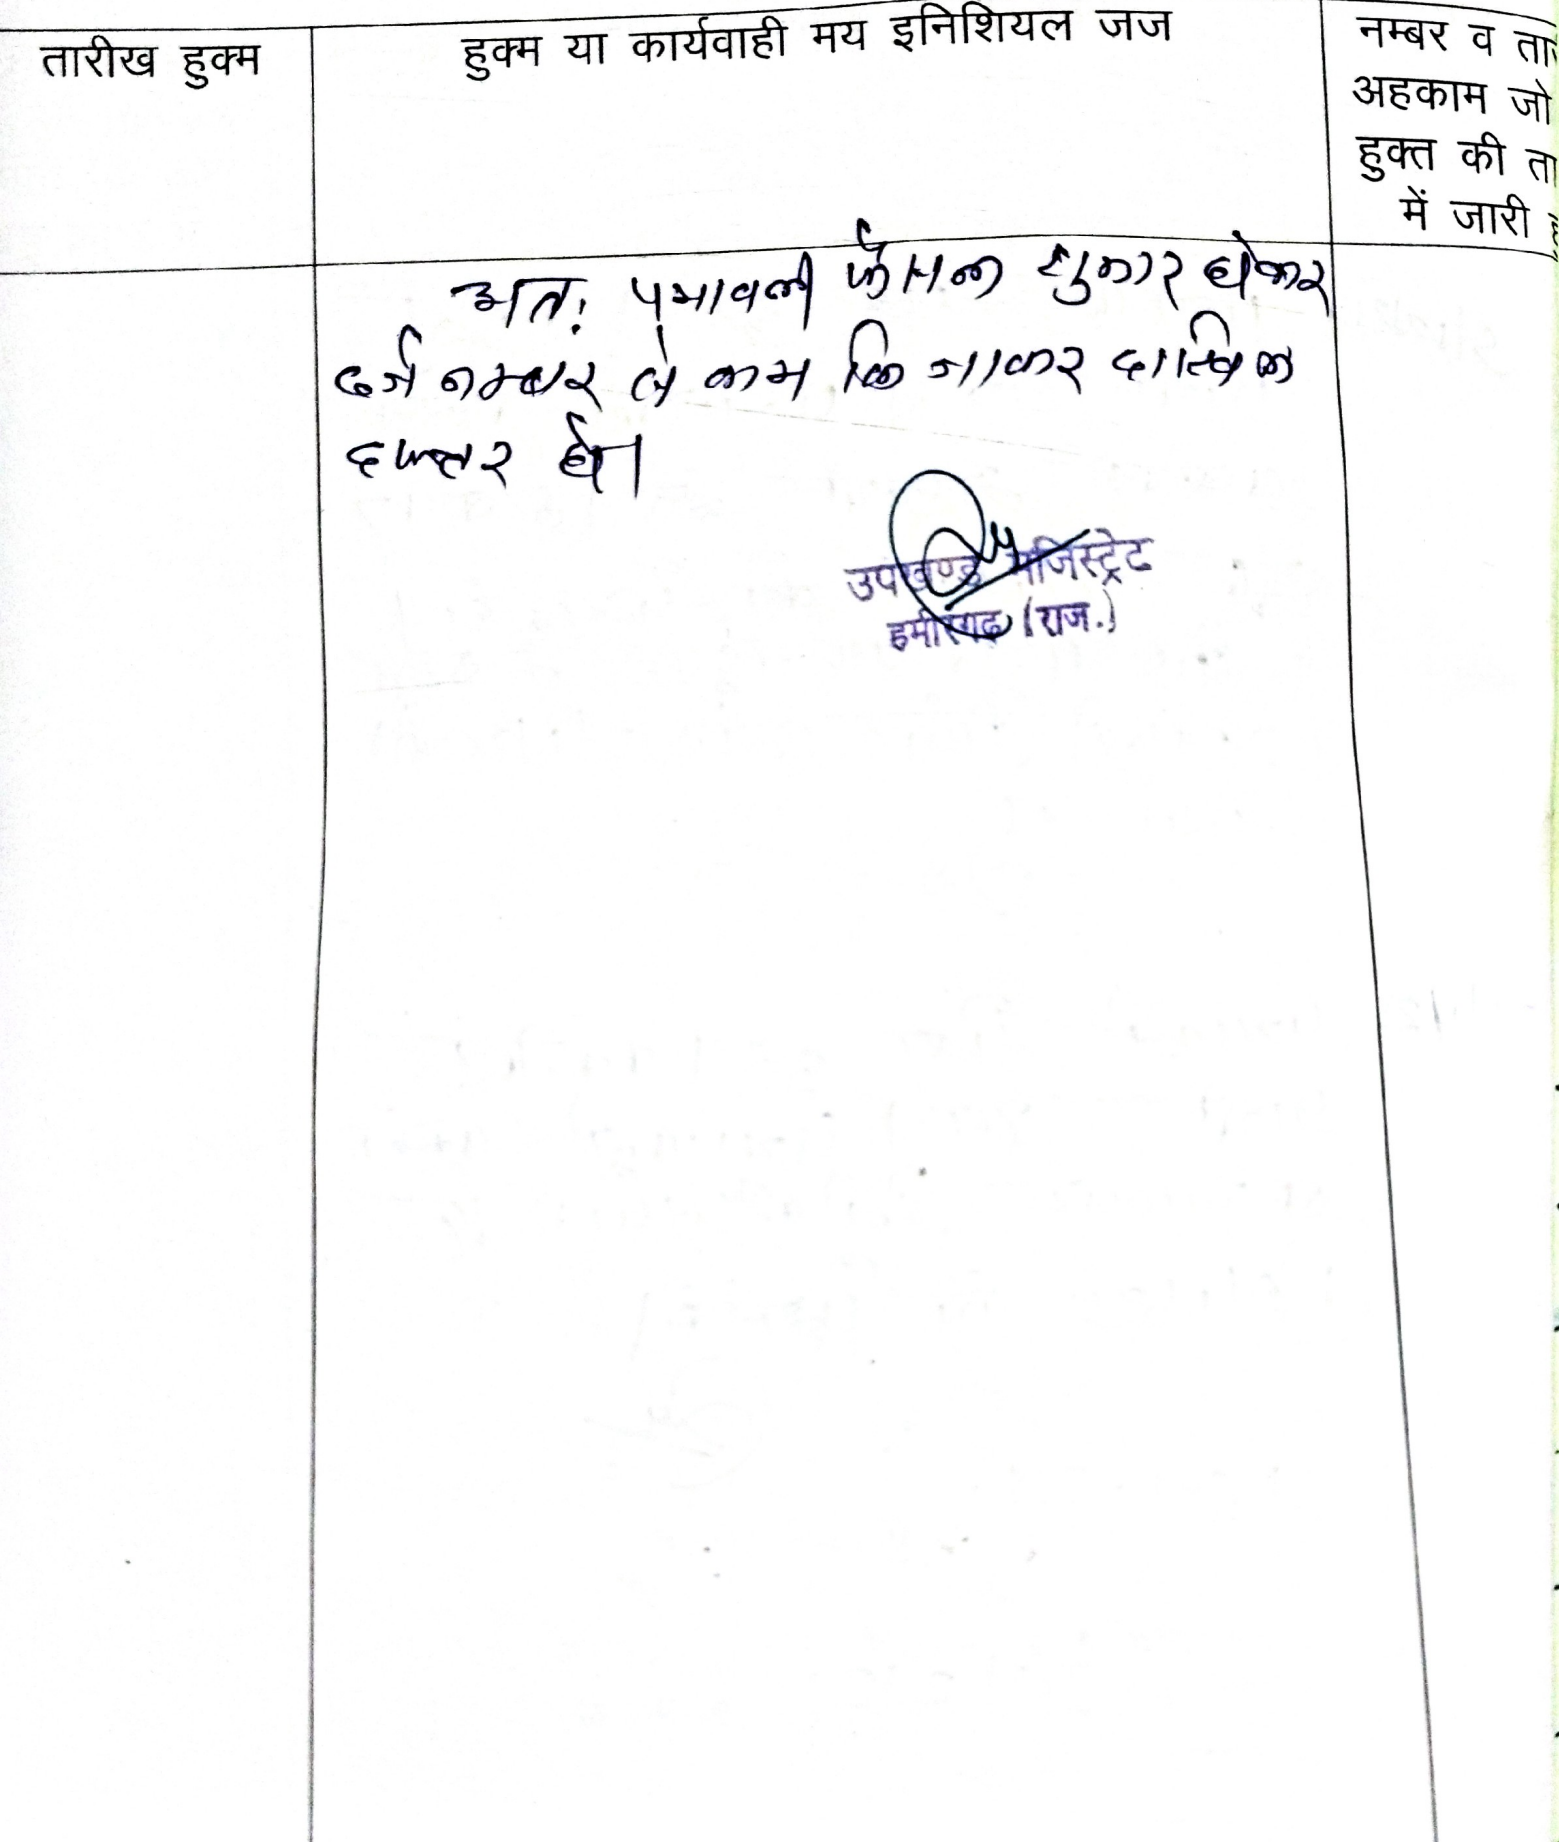 तारीख हुक्म
हुक्म या कार्यवाही मय इनिशियल जज
नम्बर व ता
अहकाम जो
हुक्त की ता
में जारी
अतः पत्रावली फैसल शुमार होकर
दर्ज नम्बर से कम कि जाकर दाखिल
दफ्तर हो।
उपखण्ड मजिस्ट्रेट
हमीरगढ (राज.)